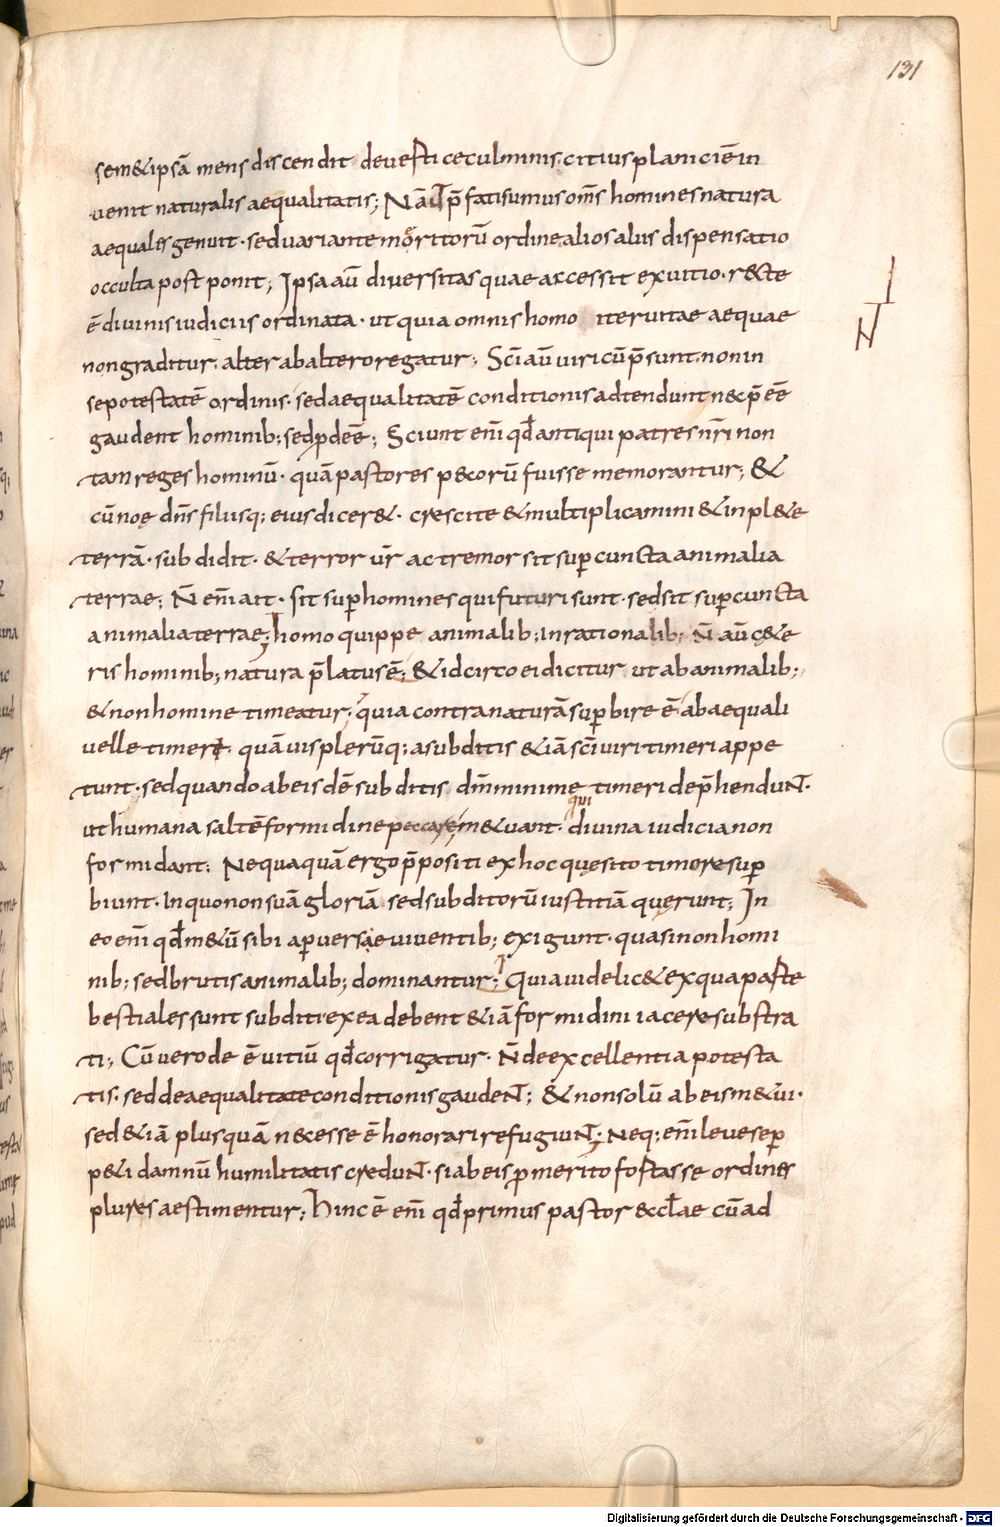 131
sem&ipsā mens discendit deuesticeculminis. citiusplaniciēin
uenit naturalis aequalitatis; Nā ut p̄fatisumus om̄s hominesnatura
aequales genuit · seduariante meritorū ordine alios aliis dispensatio
occulta post ponit; Ipsa aū diuersitas quae accessit exuitio · r&te
ē diuinis iudiciis ordinata · ut quia omnis homo iter uitae aequae
nongraditur · alter abaltero regatur; Sc̄i aū uiri cū p̄sunt · nonin
sepotestatē ordinis · sed aequalitatē conditionis adtendunt n&c p̄eē
gaudent hominib; sed pdeē; Sciunt em̄ qd̄ antiqui patres nr̄i non
tam reges hominū · quā pastores p&corū fuisse memorantur; &
cū noę dn̄s filiisq; eius dicer& · crescite & multiplicamini & inpl&e
terrā · subdidit · & terror ur̄ ac tremor sit sup cuncta animalia
terrae; N̄ em̄ ait · sit sup homines qui futuri sunt · sed sit sup cuncta
animalia terrae; homo quippe animalib; inrationalib; N̄ aū c&e
ris hominib; natura p̄latus ē; & idcirco ei dicitur ut ab animalib;
& non homine timeatur · quia contra naturā supbire ē ab aequali
uelle timeri · quāuis plerūq; a subditis &iā sc̄i uiri timeri appe
tunt · sed quando ab eis dē subditis dm̄ minime timeri dep̄hendunt ·
qui
ut humana saltē formidine peccare m&uant · diuina iudicia non
formidant; Nequaquā ergo p̄positi ex hoc quęsito timore sup
biunt · In quo non suā gloriā sed subditorū iustitiā quęrunt; In
eo em̄ qd̄ m&ū sibi a peruersae uiuentib; exigunt · quasi non homi
nib; sed brutis animalib; dominantur; Quia uidelic& ex qua parte
bestiales sunt subditi ex ea debent &iā formidini iacere substra
ti; Cū uero de ē uitiū qd̄ corrigatur · N̄ de excellentia potesta
tis · sed de aequalitate conditionis gaudent; & non solū ab eis m&ui ·
sed &iā plus quā n&cesse ē honorari refugiunt; Neq; em̄ leue se p
p&i damnū humilitatis credunt · si ab eis p merito fortasse ordinis
plures aestimentur; Hinc ē em̄ qd̄ primus pastor &ccl̄ae cū ad
Digitalisierung gefördert durch die Deutsche Forschungsgemeinschaft - DFG